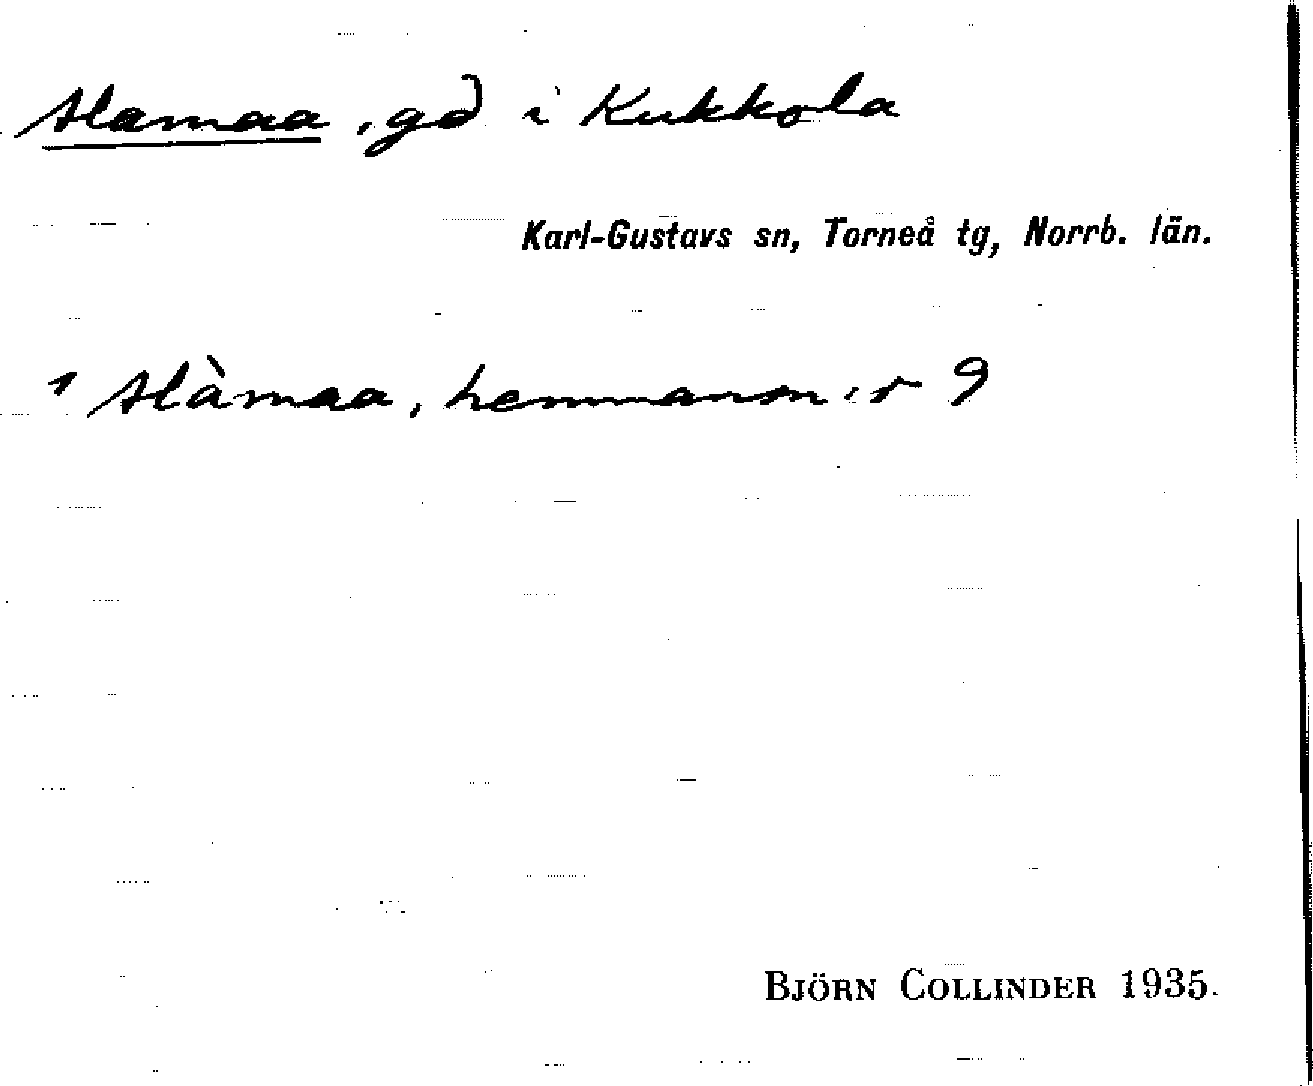 Alamaa, gd i Kukkola
Karl-Gustavs sn, Torneå tg, Norrb. län.
1 Alàmaa, hemmansnr 9
BJÖRN COLLINDER 1935.